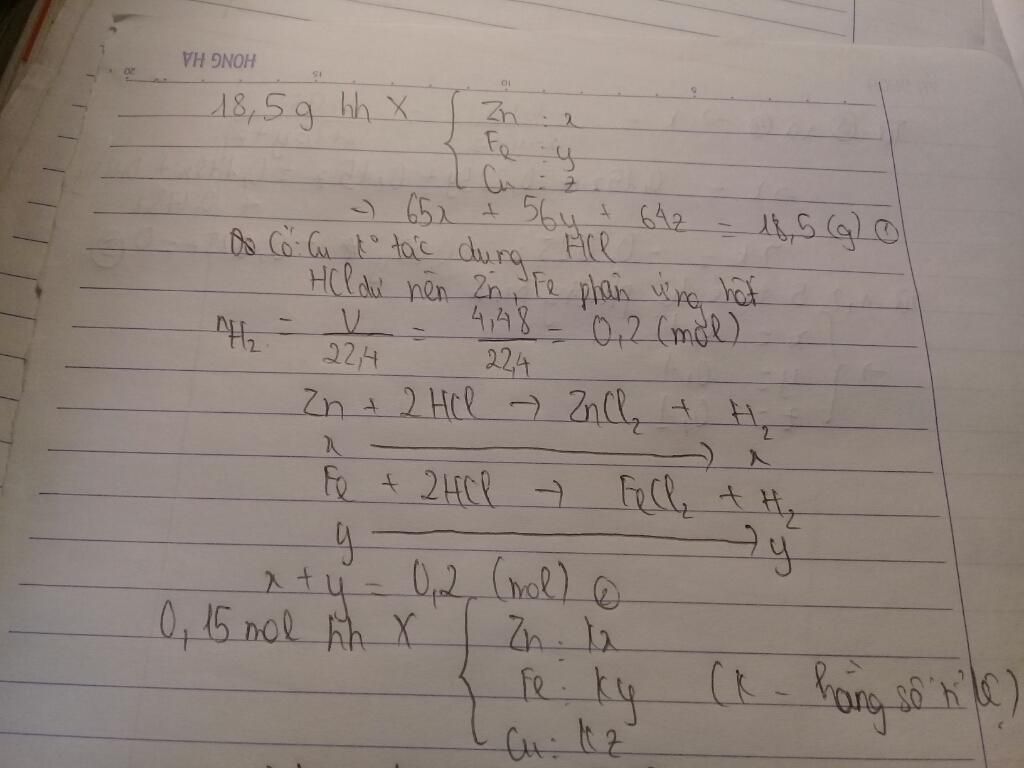 HONG HA
20 15 10 5
18,5 g hh X { Zn : x
Fe : y
Cu : z
→ 65x + 56y + 64z = 18,5 (g) ①
Có: Cu k° tác dụng HCl
HCl dư nên Zn, Fe phản ứng hết
nH₂ = V/22,4 = 4,48/22,4 = 0,2 (mol)
Zn + 2HCl → ZnCl₂ + H₂
x → x
Fe + 2HCl → FeCl₂ + H₂
y → y
x + y = 0,2 (mol) ②
0,15 mol hh X { Zn : kx
Fe : ky (k - hằng số tỉ lệ)
Cu : kz